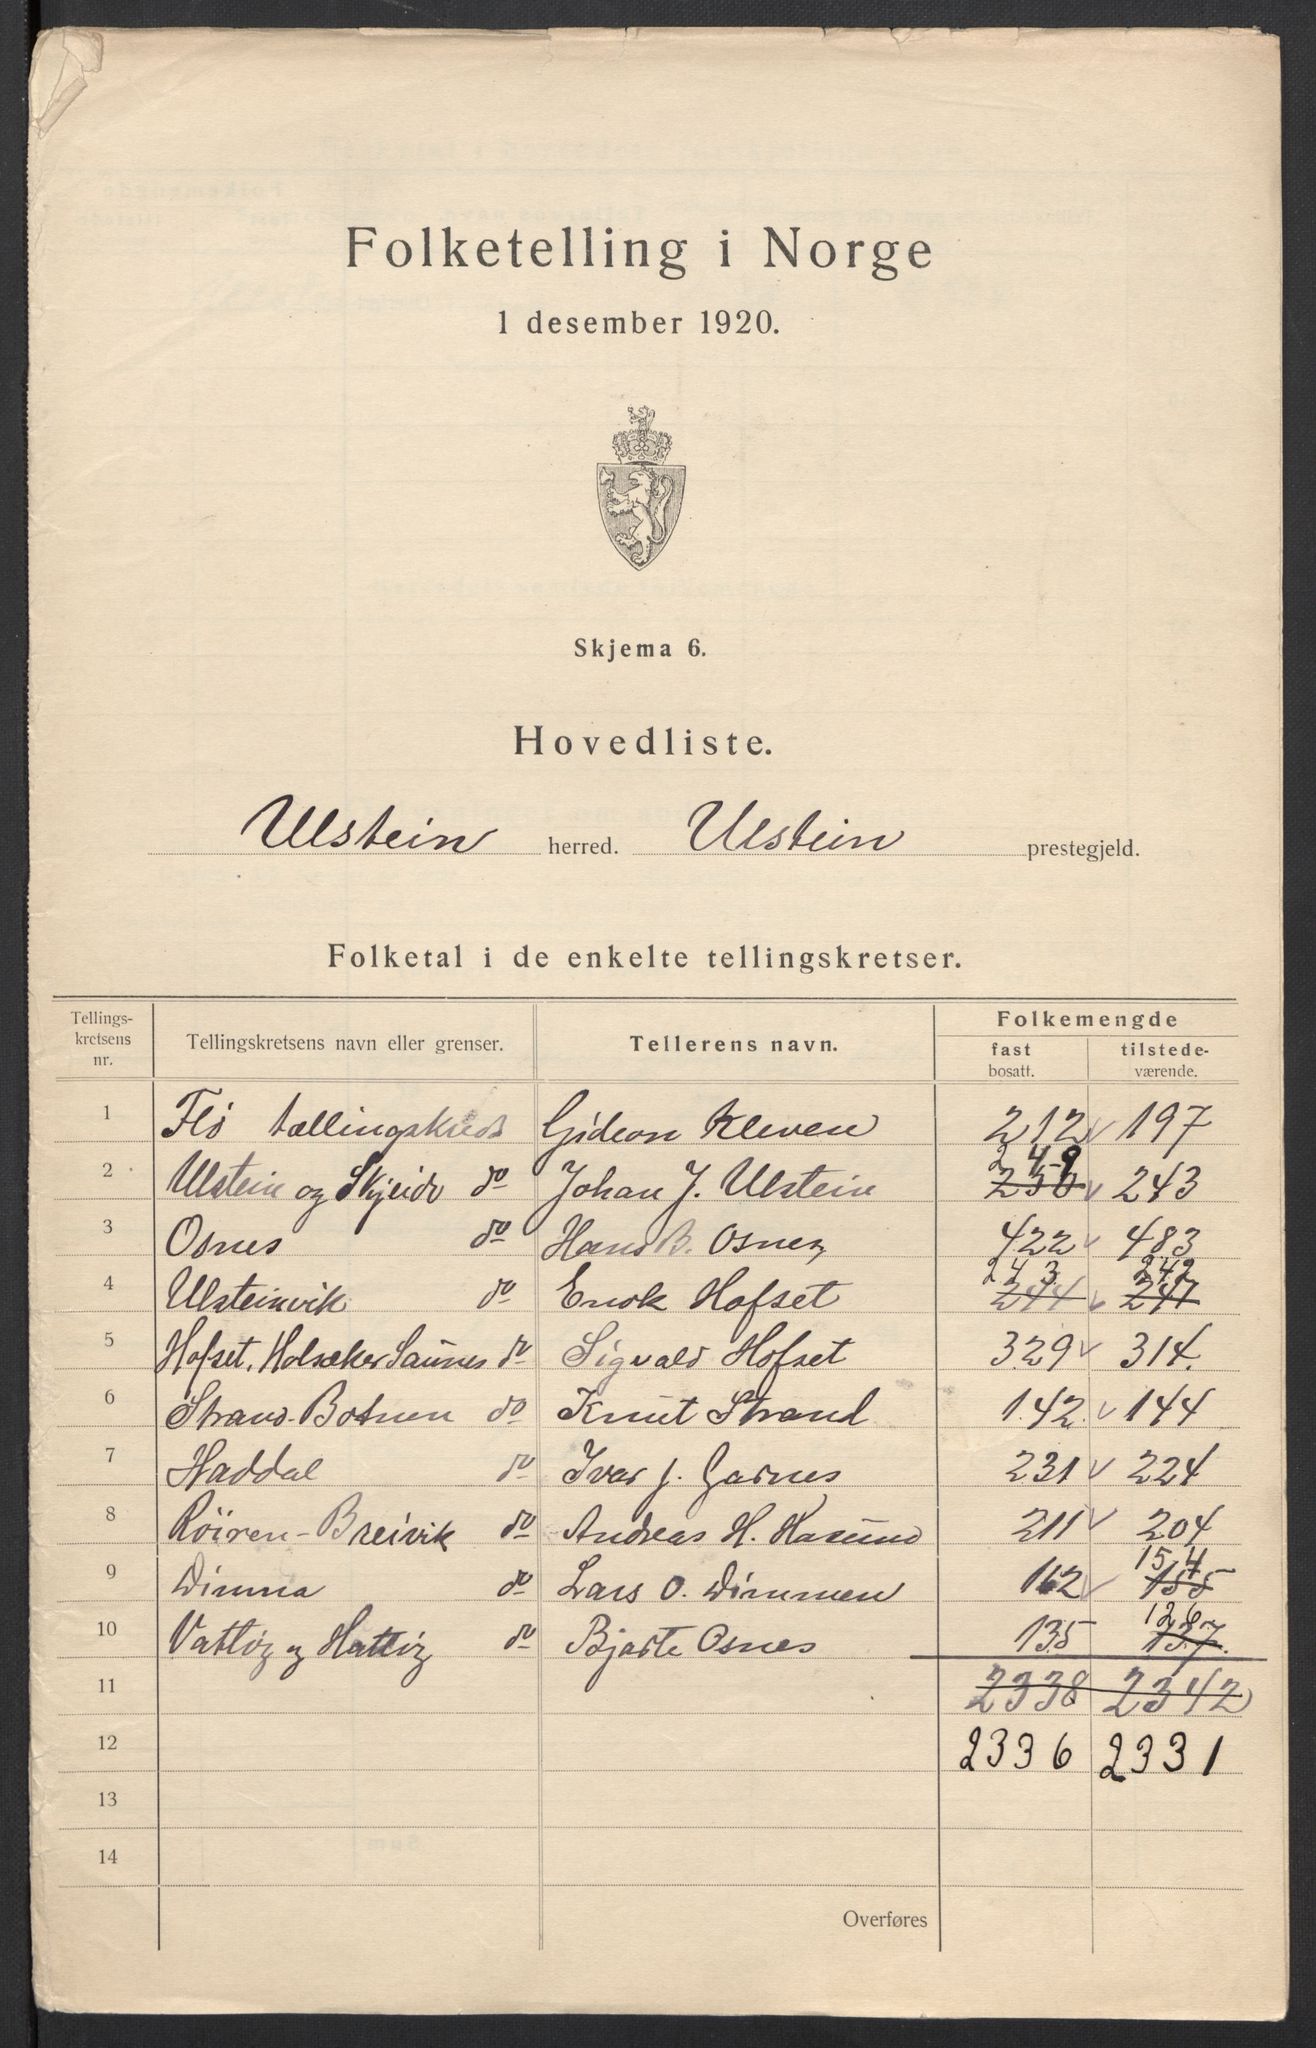 Folketelling i Norge
1 desember 1920.
Skjema 6.
Hovedliste.
Ulstein herred. Ulstein prestegjeld.
Folketal i de enkelte tellingskretser.
Tellings-kretsens nr. Tellingskretsens navn eller grenser. Tellerens navn. Folkemengde
fast bosatt. tilstede-værende.
1 Flö tællingskreds Gideon Kleven 212 197
2 Ulstein og Skjeide do Johan J. Ulstein 249 250 243
3 Osnes do Hans B. Osnes 422 483
4 Ulsteinvik do Enok Hofset 243 244 242 247
5 Hofset, Holsæker Saunes do Sigvald Hofset 329 314.
6 Strand-Botnen do Knut Strand 142 144
7 Haddal do Ivar J. Garnes 231 224
8 Röiren-Breivik do Andreas H. Hasund 211 204
9 Dimna do Lars O. Dimmen 162 154 155
10 Vattöy og Hattöy do Bjarte Osnes 135 126 137.
11 2338 2342
12 2336 2331
13
14
Overføres